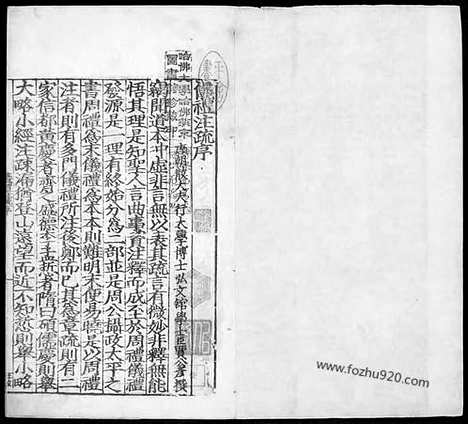 儀禮注疏序
唐朝散大夫行大學博士弘文館學士臣賈公彥撰
竊聞道本冲虛非言無以表其疏言有微妙非釋無能
悟其理是知聖人言曲事資注釋而成至於周禮儀禮
發源是一理有終始分爲二部並是周公攝政大平之
書周禮爲末儀禮爲本本則難明末便易曉是以周禮
注者則有多門儀禮所注後鄭而已其爲章疏則有二
家信都黃慶者齊之盛德李孟悊者隋曰碩儒慶則舉
大略小經注疏漏猶登山遠望而近不知悊則舉小略
www.fozhu920.com